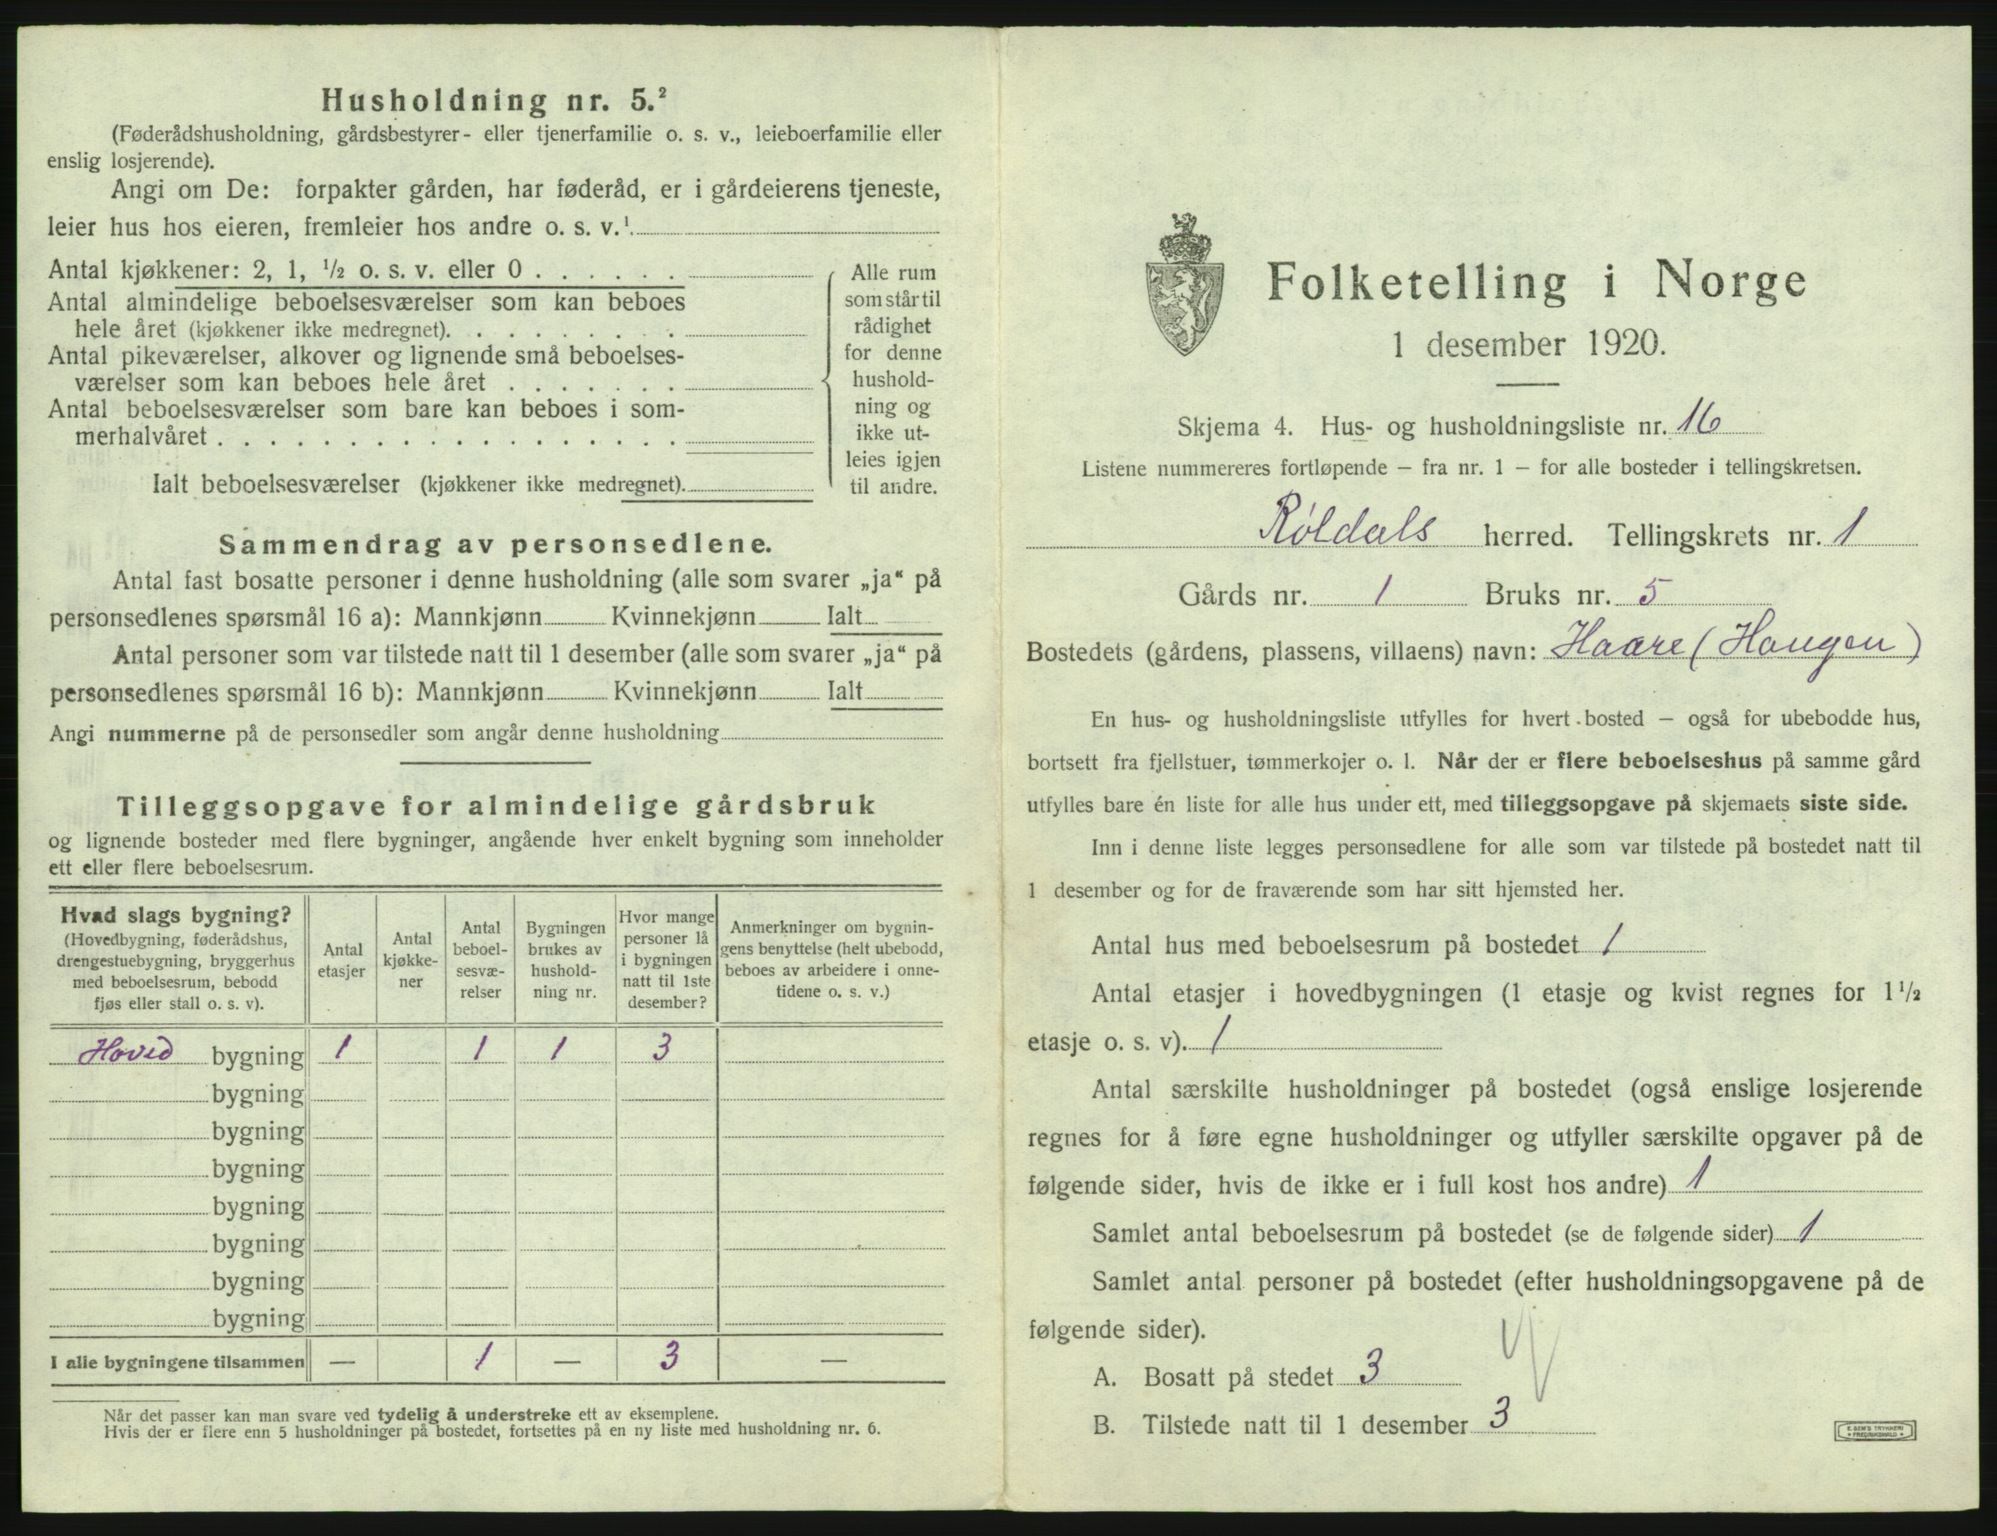 Husholdning nr. 5.²
(Føderådshusholdning, gårdsbestyrer- eller tjenerfamilie o. s. v., leieboerfamilie eller
enslig losjerende).
Angi om De: forpakter gården, har føderåd, er i gårdeierens tjeneste,
leier hus hos eieren, fremleier hos andre o. s. v.¹
Antal kjøkkener: 2, 1, ½ o. s. v. eller 0 . . . . . .
Antal almindelige beboelsesværelser som kan beboes
hele året (kjøkkener ikke medregnet). . . . . . . . .
Antal pikeværelser, alkover og lignende små beboelses-
værelser som kan beboes hele året . . . . . . .
Antal beboelsesværelser som bare kan beboes i som-
merhalvåret . . . . . . . . . . . . . . . . . .
Ialt beboelsesværelser (kjøkkener ikke medregnet).
Alle rum
som står til
rådighet
for denne
hushold-
ning og
ikke ut-
leies igjen
til andre.
Sammendrag av personsedlene.
Antal fast bosatte personer i denne husholdning (alle som svarer „ja“ på
personsedlenes spørsmål 16 a): Mannkjønn Kvinnekjønn Ialt
Antal personer som var tilstede natt til 1 desember (alle som svarer „ja“ på
personsedlenes spørsmål 16 b): Mannkjønn Kvinnekjønn Ialt
Angi nummerne på de personsedler som angår denne husholdning
Tilleggsopgave for almindelige gårdsbruk
og lignende bosteder med flere bygninger, angående hver enkelt bygning som inneholder
ett eller flere beboelsesrum.
Hvad slags bygning?
(Hovedbygning, føderådshus,
drengestuebygning, bryggerhus
med beboelsesrum, bebodd
fjøs eller stall o. s. v).
Antal
etasjer
Antal
kjøkke-
ner
Antal
beboel-
sesvæ-
relser
Bygningen
brukes av
hushold-
ning nr.
Hvor mange
personer lå
i bygningen
natt til 1ste
desember?
Anmerkninger om bygnin-
gens benyttelse (helt ubebodd,
beboes av arbeidere i onne-
tidene o. s. v.)
Hoved bygning 1 1 1 3
bygning
bygning
bygning
bygning
bygning
bygning
bygning
I alle bygningene tilsammen — 1 — 3 —
Når det passer kan man svare ved tydelig å understreke ett av eksemplene.
Hvis der er flere enn 5 husholdninger på bostedet, fortsettes på en ny liste med husholdning nr. 6.
Folketelling i Norge
1 desember 1920.
Skjema 4. Hus- og husholdningsliste nr. 16
Listene nummereres fortløpende — fra nr. 1 — for alle bosteder i tellingskretsen.
Røldals herred. Tellingskrets nr. 1
Gårds nr. 1 Bruks nr. 5
Bostedets (gårdens, plassens, villaens) navn: Haare (Haugen)
En hus- og husholdningsliste utfylles for hvert bosted — også for ubebodde hus,
bortsett fra fjellstuer, tømmerkojer o. l. Når der er flere beboelseshus på samme gård
utfylles bare én liste for alle hus under ett, med tilleggsopgave på skjemaets siste side.
Inn i denne liste legges personsedlene for alle som var tilstede på bostedet natt til
1 desember og for de fraværende som har sitt hjemsted her.
Antal hus med beboelsesrum på bostedet 1
Antal etasjer i hovedbygningen (1 etasje og kvist regnes for 1½
etasje o. s. v). 1
Antal særskilte husholdninger på bostedet (også enslige losjerende
regnes for å føre egne husholdninger og utfyller særskilte opgaver på de
følgende sider, hvis de ikke er i full kost hos andre) 1
Samlet antal beboelsesrum på bostedet (se de følgende sider) 1
Samlet antal personer på bostedet (efter husholdningsopgavene på de
følgende sider).
A. Bosatt på stedet 3
B. Tilstede natt til 1 desember 3
E SEM'S TRYKKERI
FREDRIKSHALD